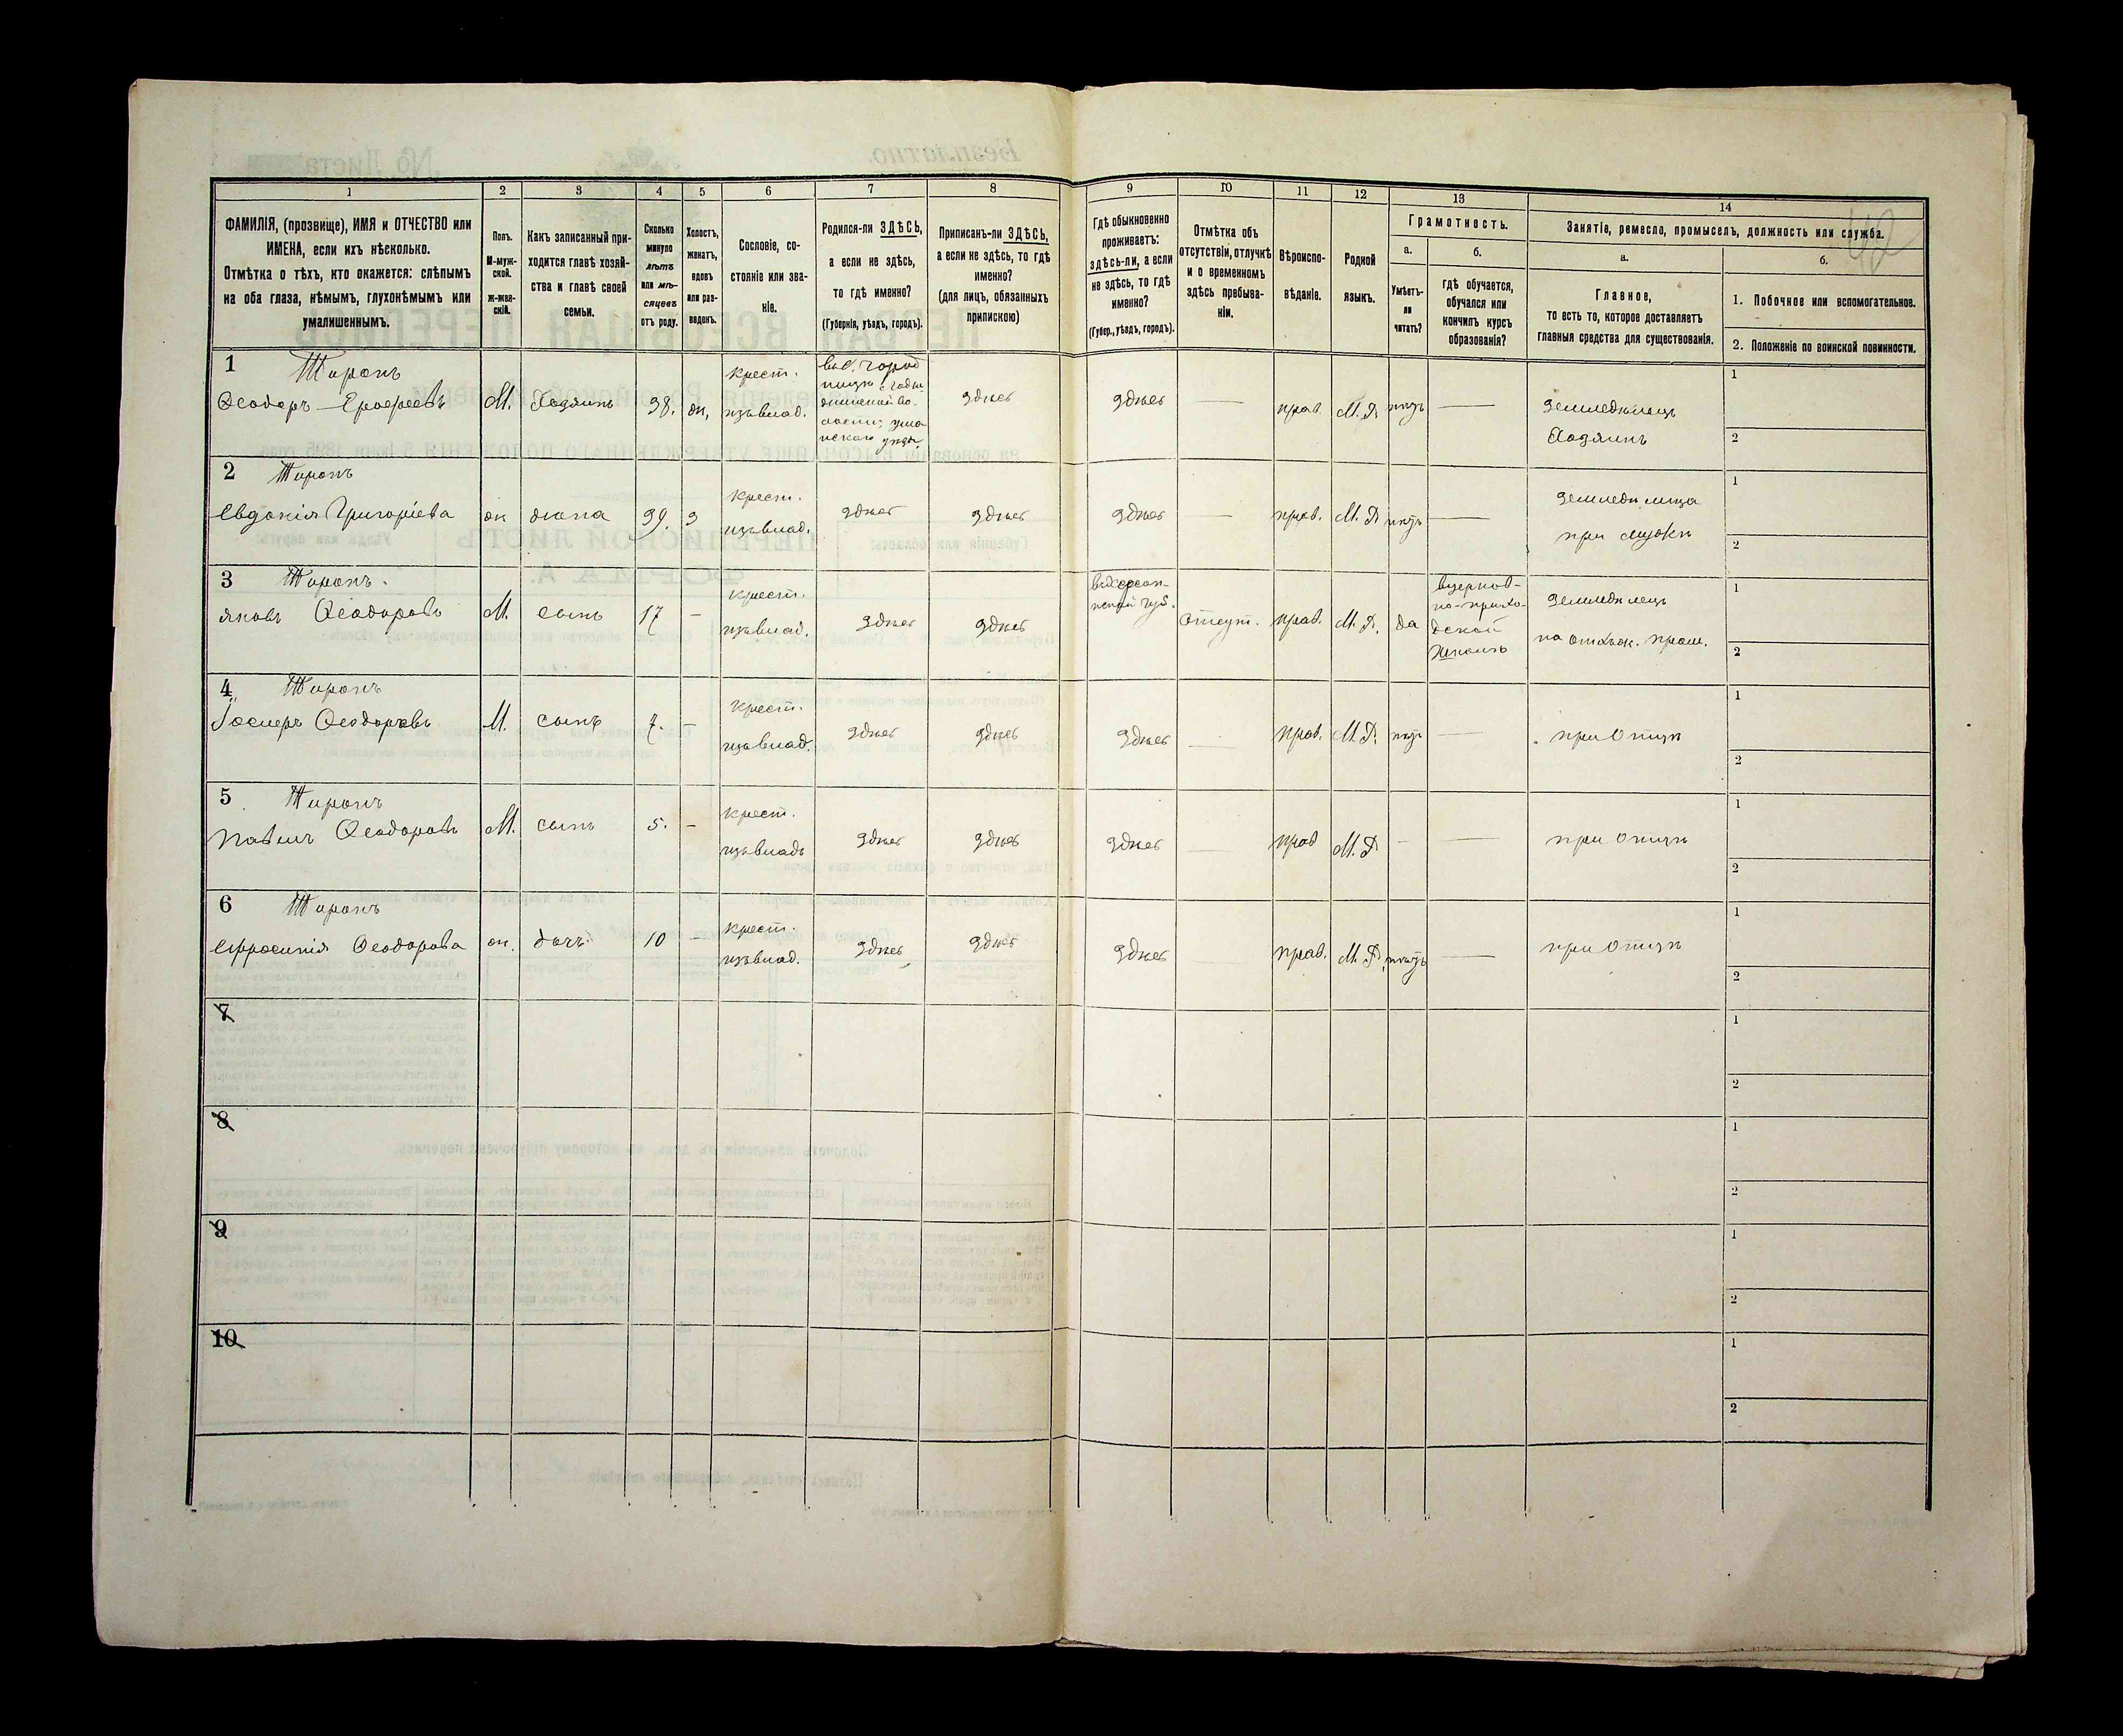 1 2 3 4 5 6 7 8 9 10 11 12 13 14
ФАМИЛІЯ, (прозвище), ИМЯ и ОТЧЕСТВО или
ИМЕНА, если ихъ нѣсколько.
Отмѣтка о тѣхъ, кто окажется: слѣпымъ
на оба глаза, нѣмымъ, глухонѣмымъ или
умалишеннымъ.
Полъ.
М-муж-
ской.
ж-жен-
скій.
Какъ записанный при-
ходится главѣ хозяй-
ства и главѣ своей
семьи.
Сколько
минуло
лѣтъ
или мѣ-
сяцевъ
отъ роду.
Холостъ,
женатъ,
вдовъ
или раз-
веденъ.
Сословіе, со-
стояніе или зва-
ніе.
Родился-ли ЗДѢСЬ,
а если не здѣсь,
то гдѣ именно?
(Губернія, уѣздъ, городъ).
Приписанъ-ли ЗДѢСЬ,
а если не здѣсь, то гдѣ
именно?
(для лицъ, обязанныхъ
припискою)
Гдѣ обыкновенно
проживаетъ:
здѣсь-ли, а если
не здѣсь, то гдѣ
именно?
(Губер., уѣздъ, городъ).
Отмѣтка объ
отсутствіи, отлучкѣ
и о временномъ
здѣсь пребыва-
ніи.
Вѣроиспо-
вѣданіе.
Родной
языкъ.
Грамотность.
а.
Умѣетъ-
ли
читать?
б.
гдѣ обучается,
обучался или
кончилъ курсъ
образованія?
Занятіе, ремесло, промыселъ, должность или служба.
42
а.
Главное,
то есть то, которое доставляетъ
главныя средства для существованія.
б.
1. Побочное или вспомогательное.
2. Положеніе по воинской повинности.
1 Тиронъ
Ѳеодоръ Ерофеевъ
М. Хозяинъ 38. ж.
крест.
изъ влад.
здѣсь здѣсь — прав. М.Р. нѣтъ —
земледѣлецъ
Хозяинъ
1
2
2 Тиронъ
Евдокія Григоріева ж жена 39. з
крест.
изъ влад.
здѣсь здѣсь здѣсь — прав. М.Р. нѣтъ —
при мужѣ
1
2
3 Тиронъ.
Яковъ Ѳеодоровъ М. сынъ 17 —
крест.
изъ влад.
здѣсь здѣсь
отсут. прав. М.Р. да
въ церков-
но-прихо-
дской
школѣ
земледѣлецъ
1
2
4 Тиронъ
М. сынъ 7. —
крест.
изъ влад.
здѣсь здѣсь здѣсь — прав. М.Р. нѣтъ — при отцѣ
1
2
5 Тиронъ
Павелъ Ѳеодоровъ М. сынъ 5. —
крест.
изъ влад.
здѣсь здѣсь здѣсь — прав М.Р. — — при отцѣ
1
2
6 Тиронъ
Ефросинія Ѳеодорова ж. дочь 10 —
крест.
изъ влад.
здѣсь здѣсь здѣсь прав. М.Р. нѣтъ — при отцѣ
1
2
7
1
2
8
1
2
9
1
2
10
1
2